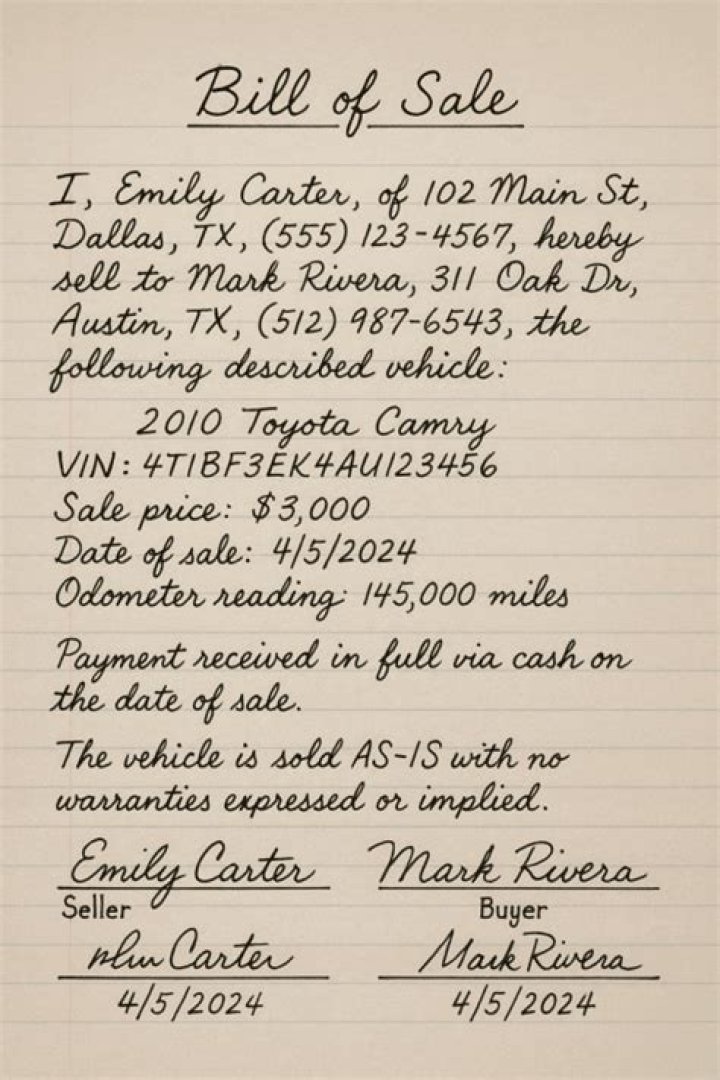 Bill of Sale
I, Emily Carter, of 102 Main St,
Dallas, TX, (555) 123-4567, hereby
sell to Mark Rivera, 311 Oak Dr,
Austin, TX, (512) 987-6543, the
following described vehicle:
2010 Toyota Camry
VIN: 4T1BF3EK4AU123456
Sale price: $3,000
Date of sale: 4/5/2024
Odometer reading: 145,000 miles
Payment received in full via cash on
the date of sale.
The vehicle is sold AS-IS with no
warranties expressed or implied.
Emily Carter Mark Rivera
Seller Buyer
Carter Mark Rivera
4/5/2024 4/5/2024